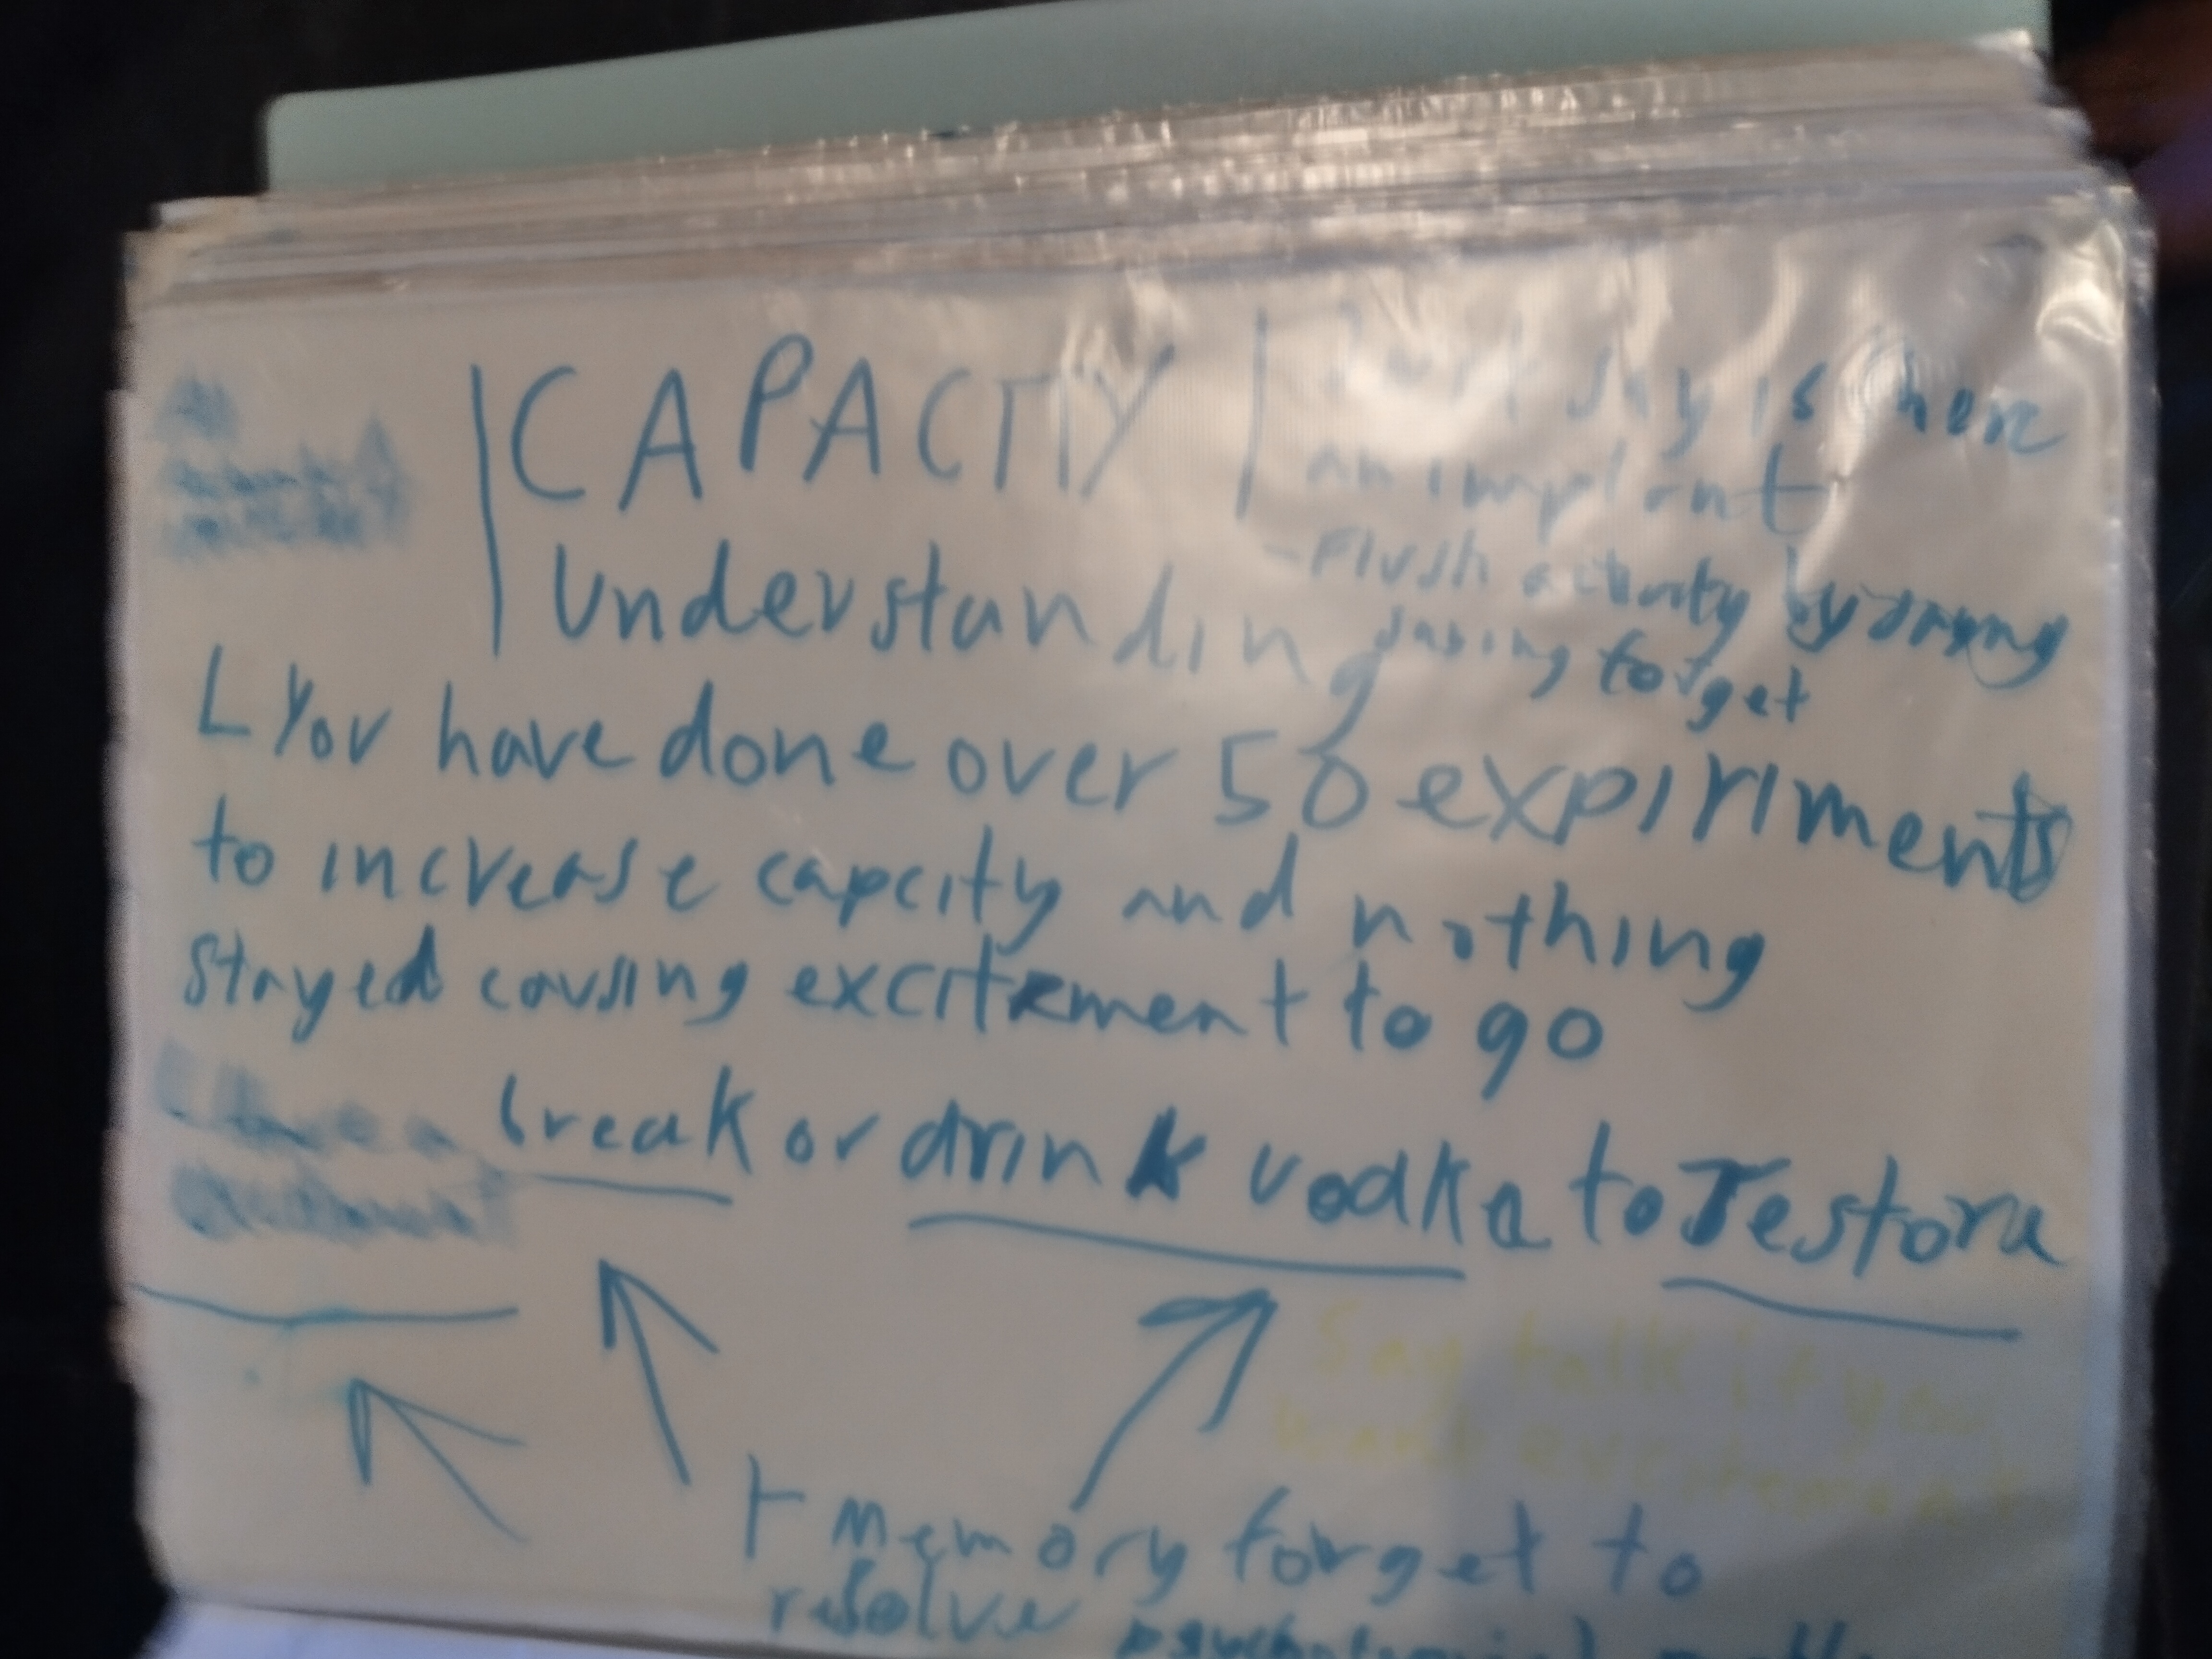 CAPACITY
say is there
an implant
- Flush activity by trying
saying forget
Understanding
L You have done over 50 expiriments
to increase capcity and nothing
stayed causing excitement to go
break or drink vodka to restore
Say talk if you
want excitement
⊢ memory forget to
resolve